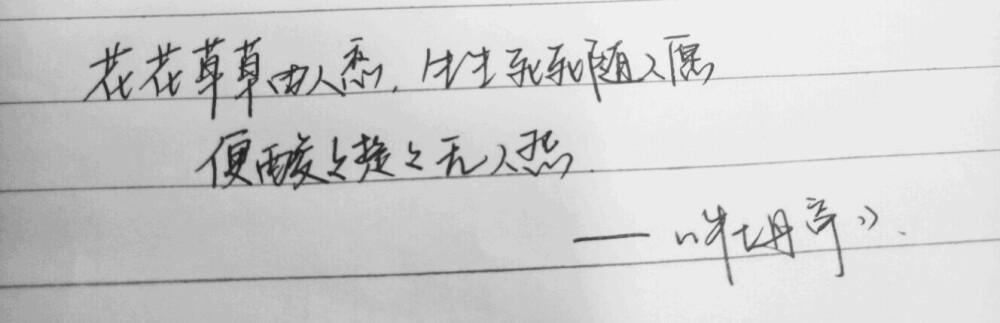 花花草草由人恋，生生死死随人愿
便酸々楚々无人怨.
——《牡丹亭》.